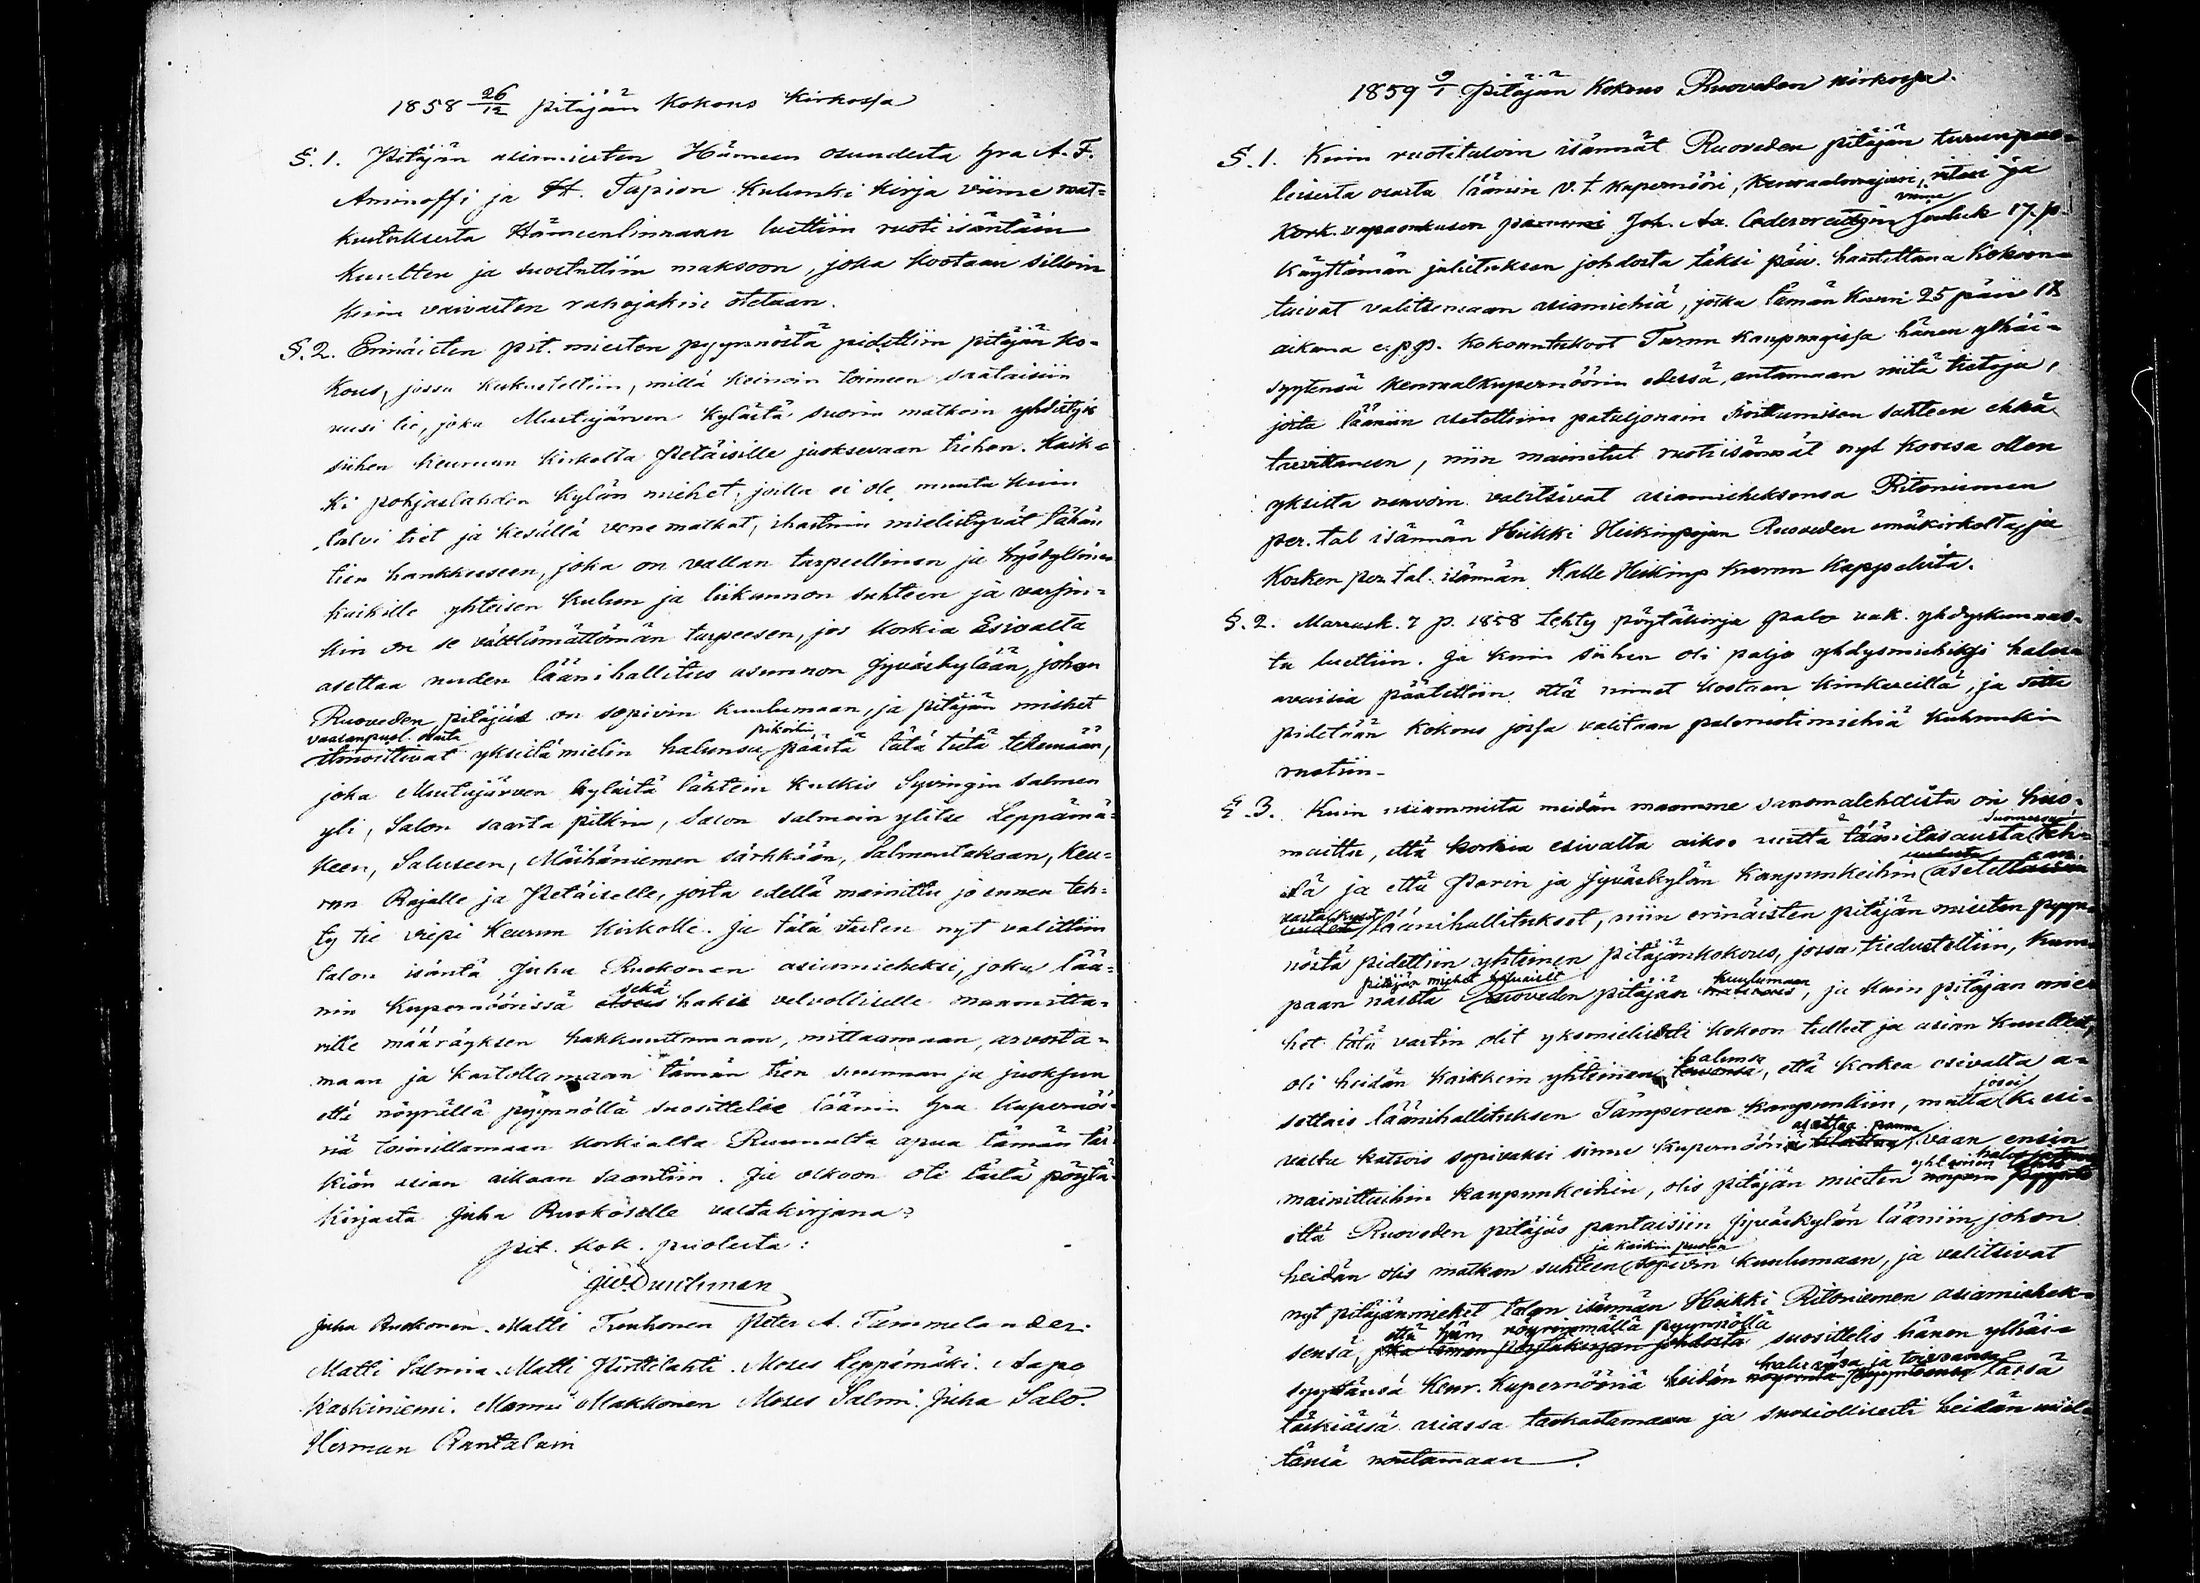 1858 26/12 pitäjän Kokous Kirkossa
§. 1. Pitäjän asiamiesten Hämeen osuudesta hra A. F.
Aminoffi ja H. Tapion Kulunki Kirja viime mat-
kustuksesta Hämeenlinnaan luettiin ruoti isäntäin
kuulten ja suostuttiin maksoon, joka kootaan silloin
kuin vaivasten rahojakin otetaan.
§. 2. Erinäisten pit. miesten pyynnöstä pidettiin pitäjän ko-
kous, jossa keskusteltiin, millä keinoin toimeen saataisiin
uusi tie, joka Mustajärven Kylästä suorin matkoin yhdistyis
siihen Keuruun Kirkolta Petäisille juoksevaan tiehen. Kaik-
ki pohjaslahden Kylän miehet, joilla ei ole muuta kuin
talvi tiet ja kesällä vene matkat, ihastuin mielistyvät tähän
tien hankkeeseen, joka on vallan tarpeellinen ja hyödyllinen
kaikille yhteisen kulun ja liikunnon suhteen ja varsin-
kin on se välttämättömän tarpeesen, jos korkia Esivalta
asettaa uuden lääni hallitus asunnon Jyväskylään, johon
Ruoveden pitäjäs on sopivin kuulumaan, ja pitäjän miehet
vaasanpuol. osasta pikoihin
ilmoittivat yksillä mielin halunsa päästä tätä tietä tekemään,
joka Mustajärven kylästä lähtein kulkis Syvingin salmen
yli, Salon saarta pitkin, Salon salmein ylitse Leppämä-
keen, Saluseen, Mäihäniemen särkkään, Salmentakaan, Keu-
run Rajalle ja Petäiselle, josta edellä mainittu jo ennen teh-
ty tie viepi Keurun Kirkolle. Ja tätä varten nyt valittiin
talon isäntä Juha Ruokonen asiamieheksi, joka lää-
sekä
nin Kupernöörissä hakis velvolliselle maamitta-
rille määräyksen hakkuuttamaan, mittaamaan, arvosta-
maan ja kartollamaan tämän tien suunnan ja juoksun
että nöyrällä pyynnöllä suosittelis läänin hra Kupernöö-
riä toimittamaan korkialta Ruunulta apua tämän tär-
kiän asian aikaan saantiin. Ja olkoon ote tästä pöytä-
kirjasta Juha Ruokoselle valtakirjana.
Pit. kok. puolesta:
Juha Ruokonen. Matti Tenhonen Peter A. Tammelander.
Matti Salmia. Matti Pirttilahti. Moses Leppämäki. Aapo
Kaskiniemi. Manni Makkonen Moses Salmi. Juha Salo.
Herman Rantalain
1859 9/1 Pitäjän Kokous Ruoveden kirkossa.
§. 1. Kuin ruotitaloin isännät Ruoveden pitäjän turunpuo-
leisesta osasta läänin v. t. kupernööri, Kenraalimajuri, ritari ja
viime
Kork. vapaankunnan parooni Joh. Aa. Cedercreutzin Jouluk 17. p.
Käyttämän julistuksen johdosta täksi päiv. haastettuna Kokoon-
tuivat valitsemaan asiamiehiä, jotka tämän kuun 25 päiv 12
aikana e. p. p. kokoontukoot Turun Kaupungissa hänen ylhäi-
syytensä Kenraalkupernöörin edessä, antamaan niitä tietoja,
joita lääniin asetettuin pataljonain suhteen ehkä
tarvittaneen, niin mainitut ruotiisännät nyt koossa ollen
yksissä neuvoin valitsivat asiamieheksensä Ritoniemen
per. tal isännän Heikki Heikinpojan Ruoveden emäkirkolta, ja
Kosken per. tal. isännän Kalle Heikinp Kurun Kappelista.
§. 2. Marrask. 7 p. 1858 tehty pöytäkirja palo vak. yhdyskunnas-
ta luettiin. Ja kuin siihen oli paljo yhdysmiehiksi halu-
avaisia päätettiin että nimet kootaan kinkereillä, ja sitte
pidetään kokous jossa valitaan paloruotimiehiä kuhunkin
ruotiin.
§. 3. Kuin useammista meidän maamme sanomalehdistä on huo-
Suomessa
mattu, että korkia esivalta aikoo uutta läänitasausta teh-
dä ja että Porin ja Jyväskylän kaupunkeihin asetettaisiin
vastaskuut
uudet läänihallitukset, niin erinäisten pitäjän miesten pyyn-
nöstä pidettiin yhteinen pitäjänkokous, jossa tiedusteltiin, kum-
pitäjän miehet haluaisit kuulumaan
paan näistä Ruoveden pitäjän, ja kuin pitäjän mie-
het tätä vastin olit yksimielisesti kokoon tulleet ja asian kuulleet,
halunsa
oli heidän kaikkein yhteinen toivonsa, että korkea esivalta a-
josei
settais läänihallituksen Tampereen kaupunkiin, mutta K. esi-
asettaa panna
valta katsois sopivaksi sinne kupernööriä, vaan ensin
yhteinen
mainittuihin kaupunkeihin, olis pitäjän miesten
että Ruoveden pitäjäs pantaisiin Jyväskylän lääniin, johon
ja kaikin puolin
heidän olis matkan suhteen sopivin kuulumaan, ja valitsivat
nyt pitäjänmiehet talon isännän Heikki Ritoniemen asiamiehek-
että hän nöyrimmällä pyynnöllä
sensä, joka tämän pöytäkirjan johdosta suosittelis hänen ylhäi-
halunsa ja toivonsa
syytänsä Kenr. Kupernööriä heidän tässä
tärkiässä asiassa taskastamaan ja suosiollisesti heidän miel-
tänsä noutamaan.